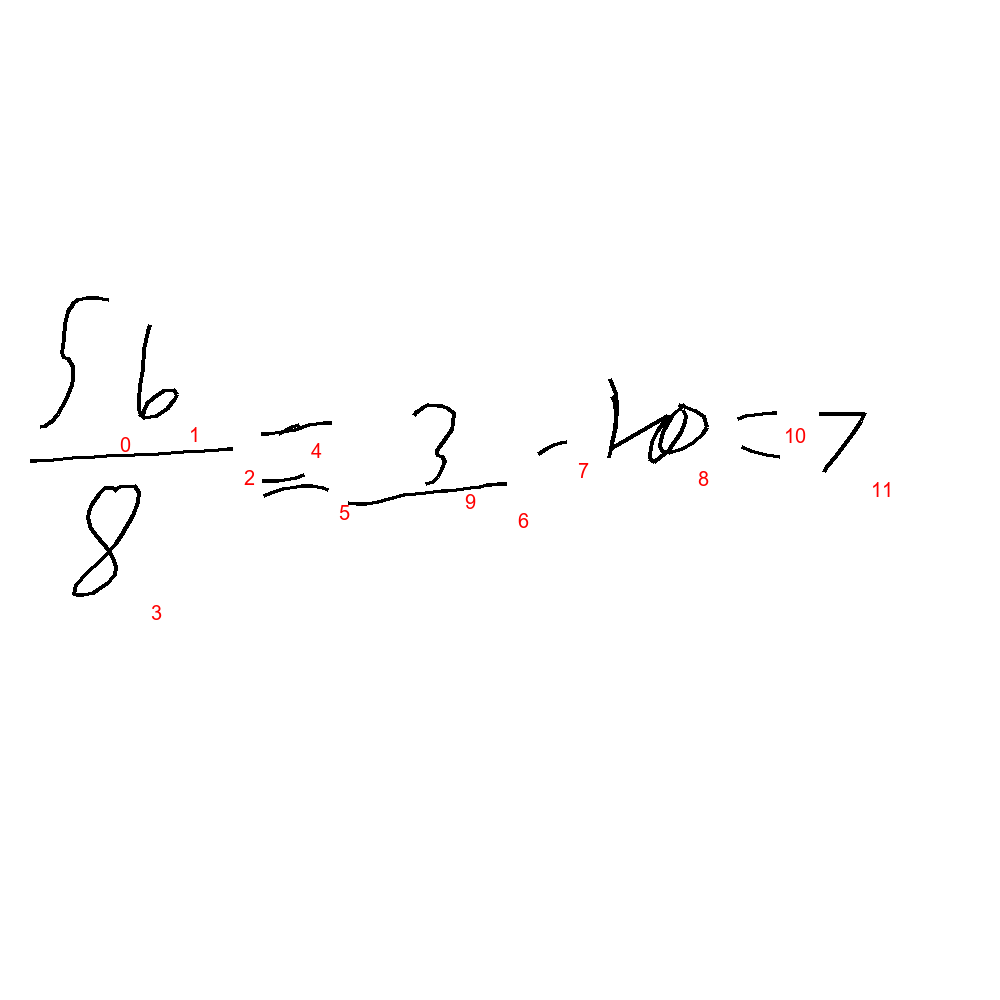 56
—
8
= 3 - 10 = 7
0 1 2 3 4 5 6 7 8 9 10 11